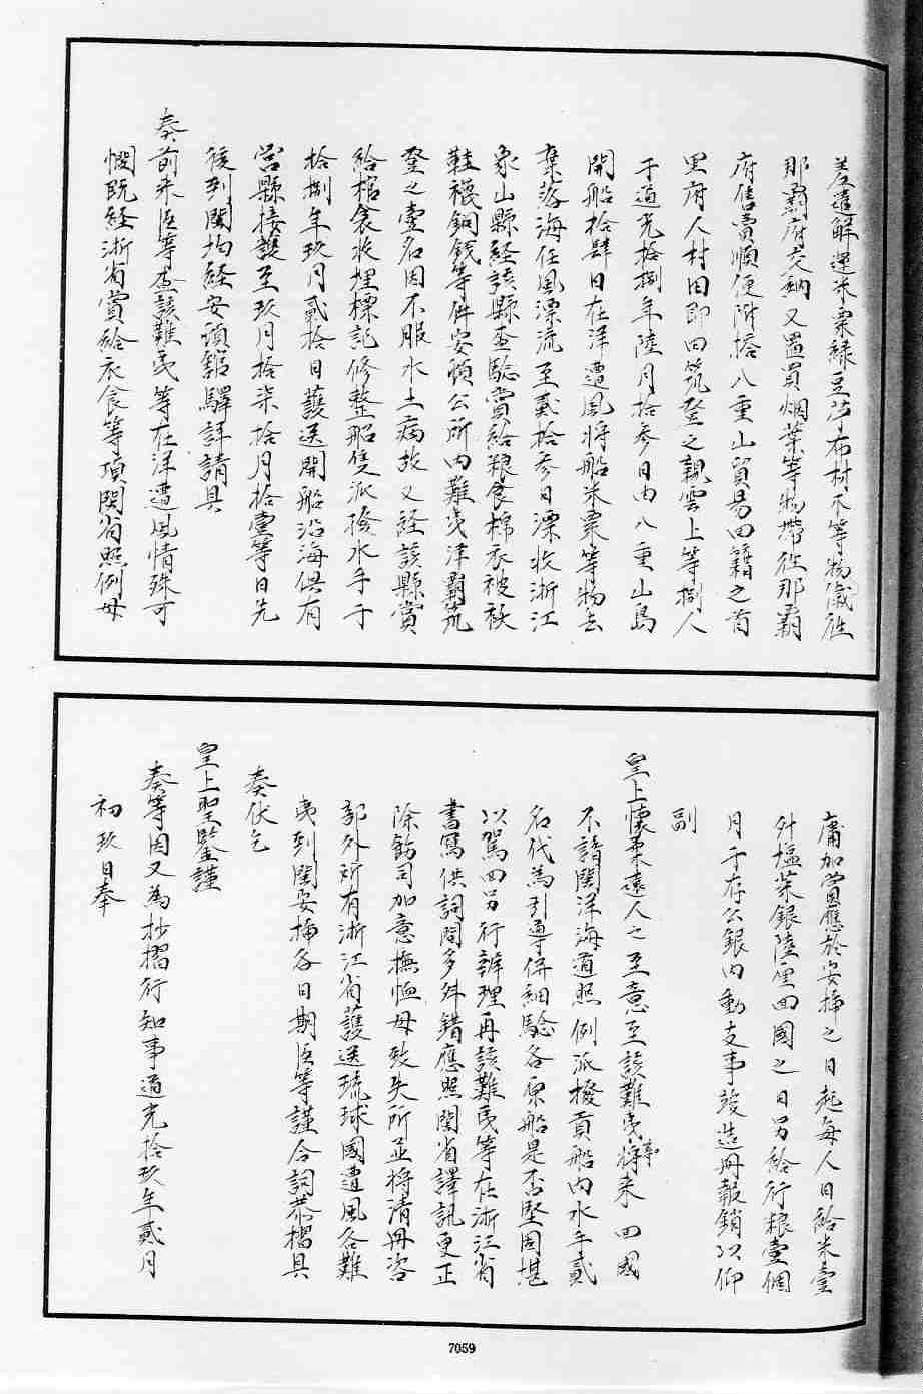 差遣解運米粟綠豆莎布材木等物儎往
那霸府交納又置買烟葉等物帶往那霸
府售賣順便附搭八重山貿易回籍之首
里府人村田即田筑登之親雲上等捌人
于道光拾捌年陸月拾參日由八重山島
開船拾肆日在洋遭風將船米粟等物丟
棄落海任風漂流至貳拾參日漂收浙江
象山縣經該縣查驗賞給粮食棉衣被袄
鞋襪銅錢等件安頓公所內難夷津霸筑
登之壹名因不服水土病故又經該縣賞
給棺衾收埋標記修整船隻派撥水手于
拾捌年玖月貳拾日護送開船沿海俱有
營縣接護至玖月拾柒拾月拾壹等日先
後到閩均經安頓館驛詳請具
奏前來臣等查該難夷等在洋遭風情殊可
憫既經浙省賞給衣食等項閩省照例毋
庸加賞應於安插之日起每人日給米壹
升塩菜銀陸厘回國之日另給行粮壹個
月于存公銀內動支事竣造冊報銷以仰
副
皇上懷柔遠人之至意至該難夷將來回國
不諳閩洋海道照例派撥貢船內水手貳
名代為引導併細驗各原船是否堅固堪
以駕回另行辦理再該難夷等在浙江省
書寫供詞間多舛錯應照閩省譯訊更正
除飭司加意撫恤毋致失所並將清冊咨
部外所有浙江省護送琉球國遭風各難
夷到閩安插各日期臣等謹合詞恭摺具
奏伏乞
皇上聖鑒謹
奏等因又為抄摺行知事道光拾玖年貳月
初玖日奉
7059